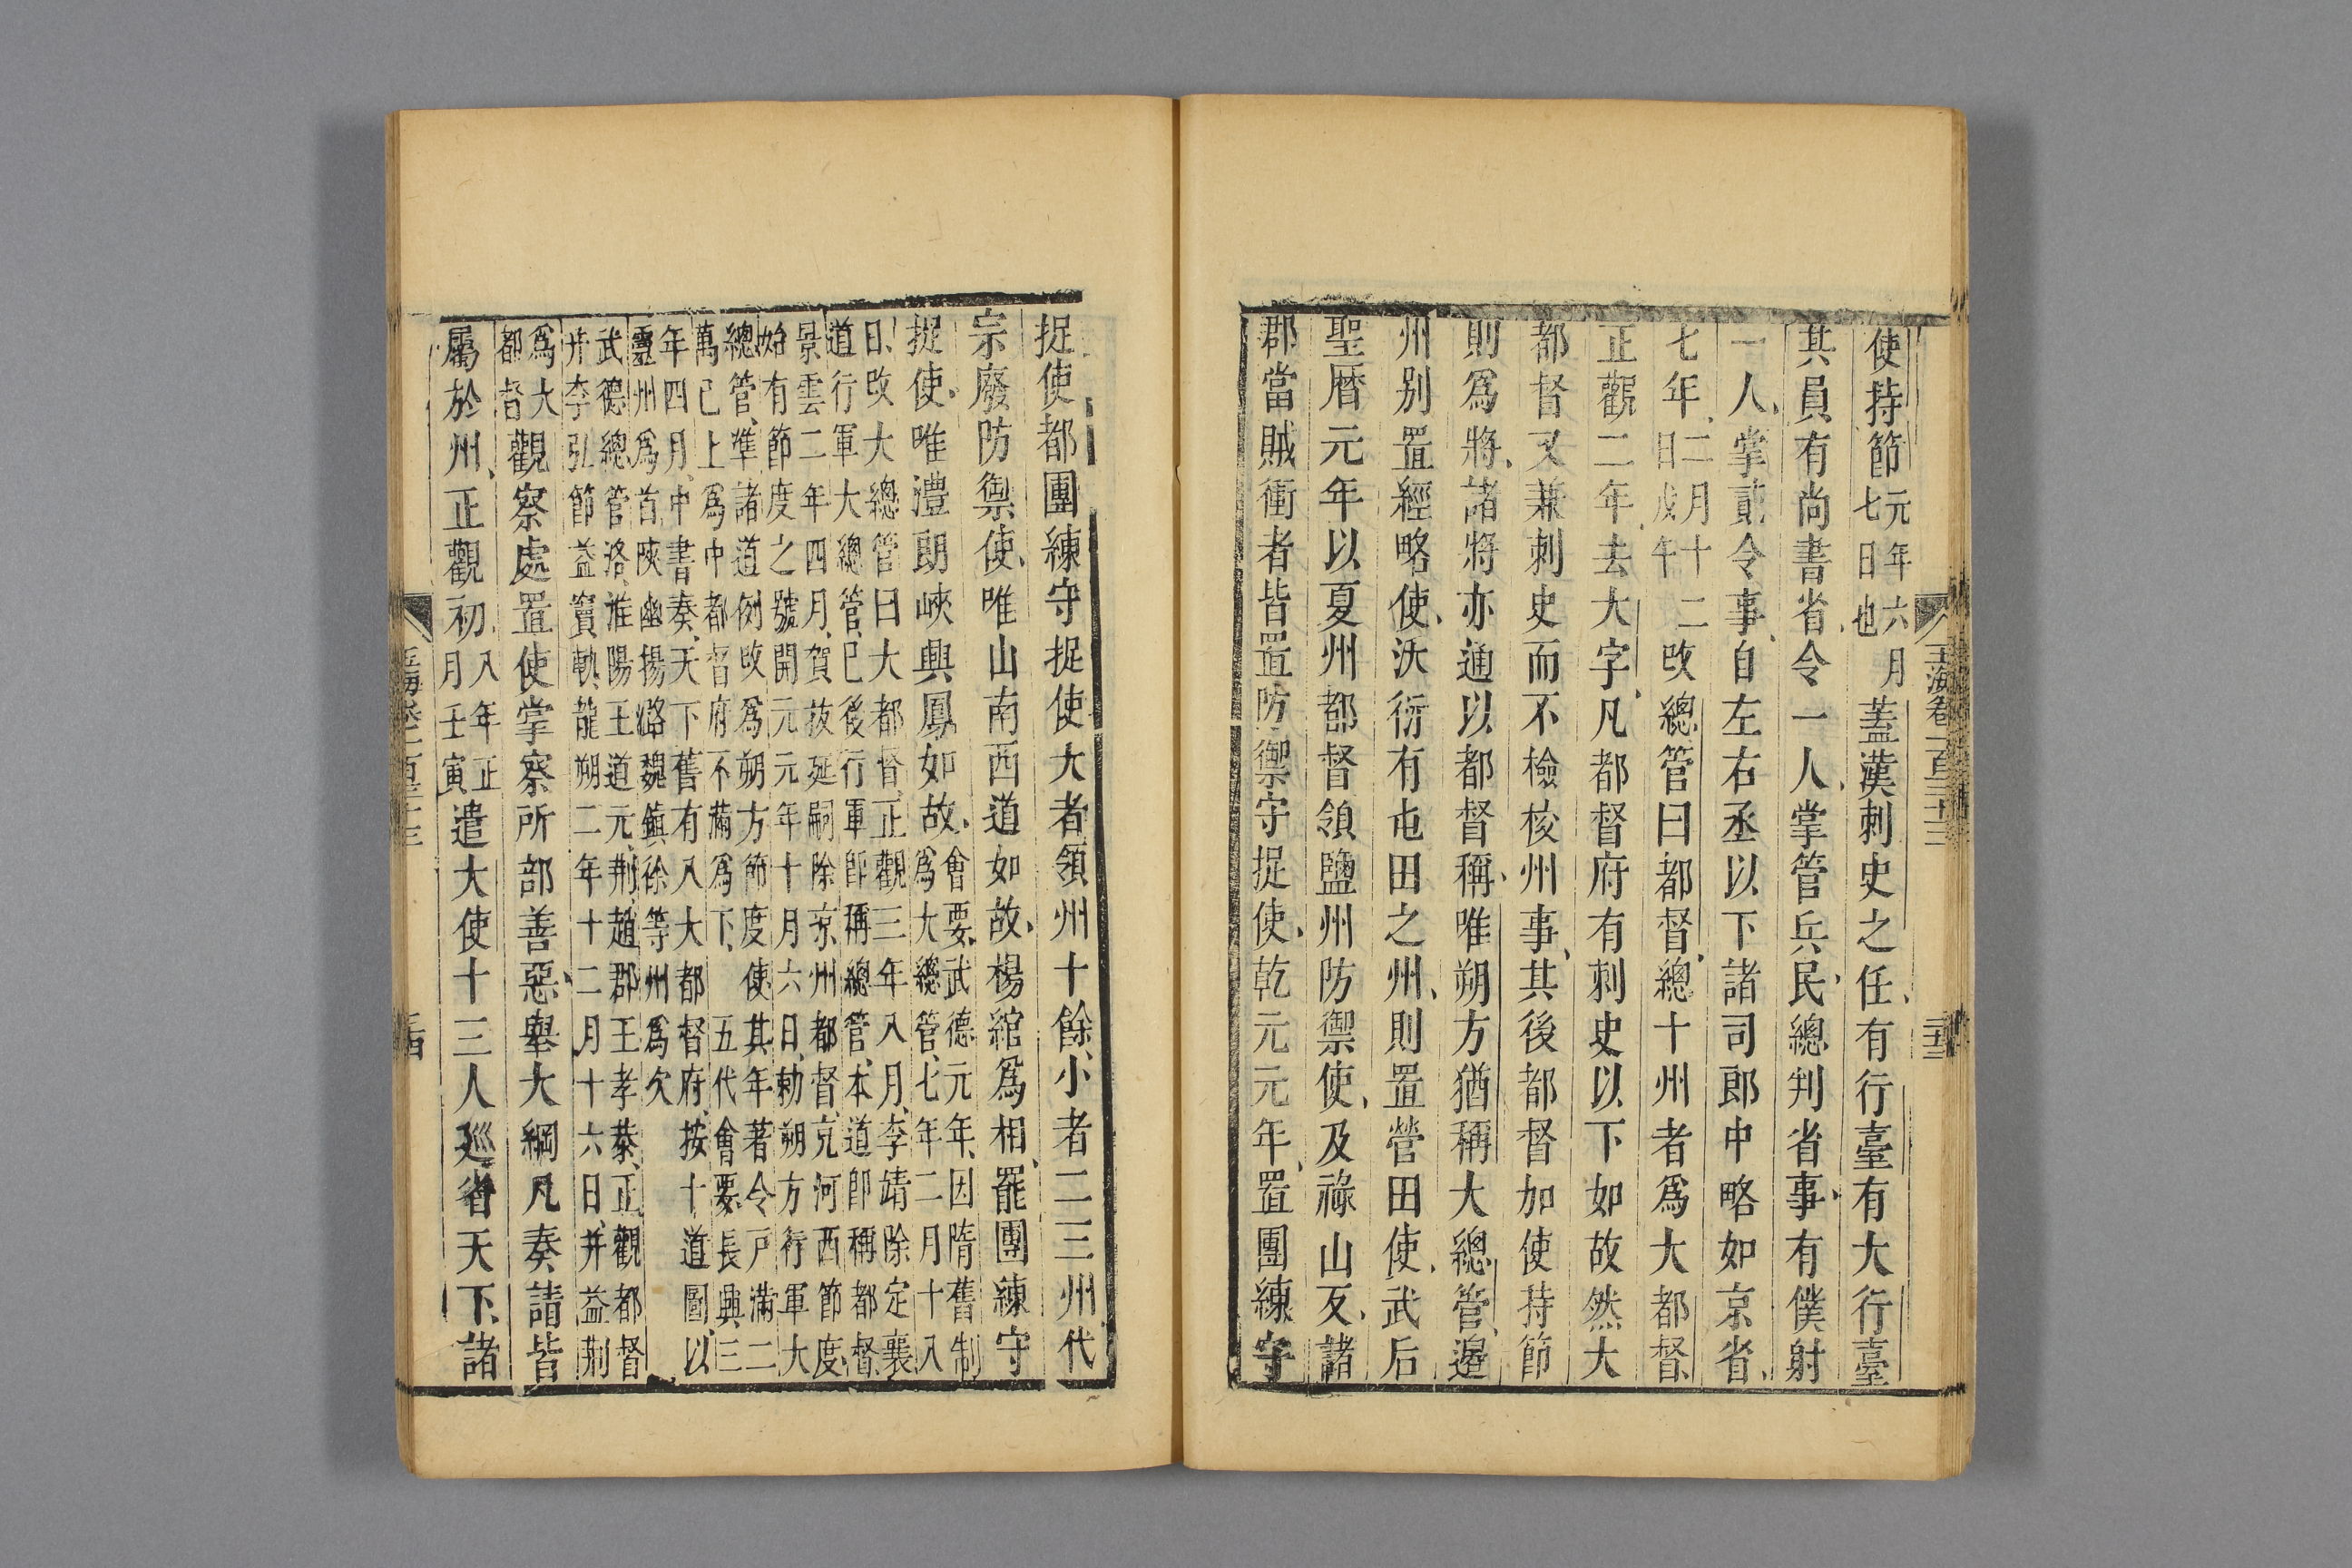 玉海卷一百三十三
使持節元年六月七日也蓋漢刺史之任、有行臺有大行臺
其員有尚書省、令一人、掌管兵民、總判省事、有僕射
一人、掌貳令事、自左右丞以下諸司郎中略如京省、
七年、二月十二日戊午改總管曰都督、總十州者爲大都督、
正觀二年、去大字、凡都督府有刺史以下如故然大
都督又兼刺史而不檢校州事、其後都督加使持節
則爲將、諸將亦通以都督稱、唯朔方猶稱大總管、邊
州别置經略使、沃衍有屯田之州、則置營田使、武后
聖曆元年以夏州都督領鹽州防禦使、及祿山反、諸
郡當賊衝者皆置防禦守捉使、乾元元年、置團練守
捉使都團練守捉使大者領州十餘、小者二三州代
宗廢防禦使、唯山南西道如故、楊綰爲相、罷團練守
捉使、唯澧朗峽興鳳如故、會要、武德元年、因隋舊制
爲大總管、七年二月十八
日、改大總管曰大都督、正觀三年八月、李靖除定襄
道行軍大總管、已後行軍卽稱總管、本道卽稱都督、
景雲二年四月、賀拔延嗣除凉州都督、充河西節度、
始有節度之號、開元元年十月六日、勅朔方行軍大
總管、準諸道例改爲朔方節度使、其年著令戸滿二
萬已上爲中都督府、不滿爲下、五代會要、長興三
年四月、中書奏、天下舊有八大都督府、按十道圖、以
靈州爲首、陝幽揚潞魏鎮徐等州爲次
武德總管、洛、淮陽王道元、荆、趙郡王孝恭、正觀都督
并李弘節益竇軌、龍朔二年十二月十六日、并益荆
爲大都督觀察處置使掌察所部善惡、舉大綱、凡奏請皆
屬於州、正觀初、八年正月壬寅遣大使十三人廵省天下、諸